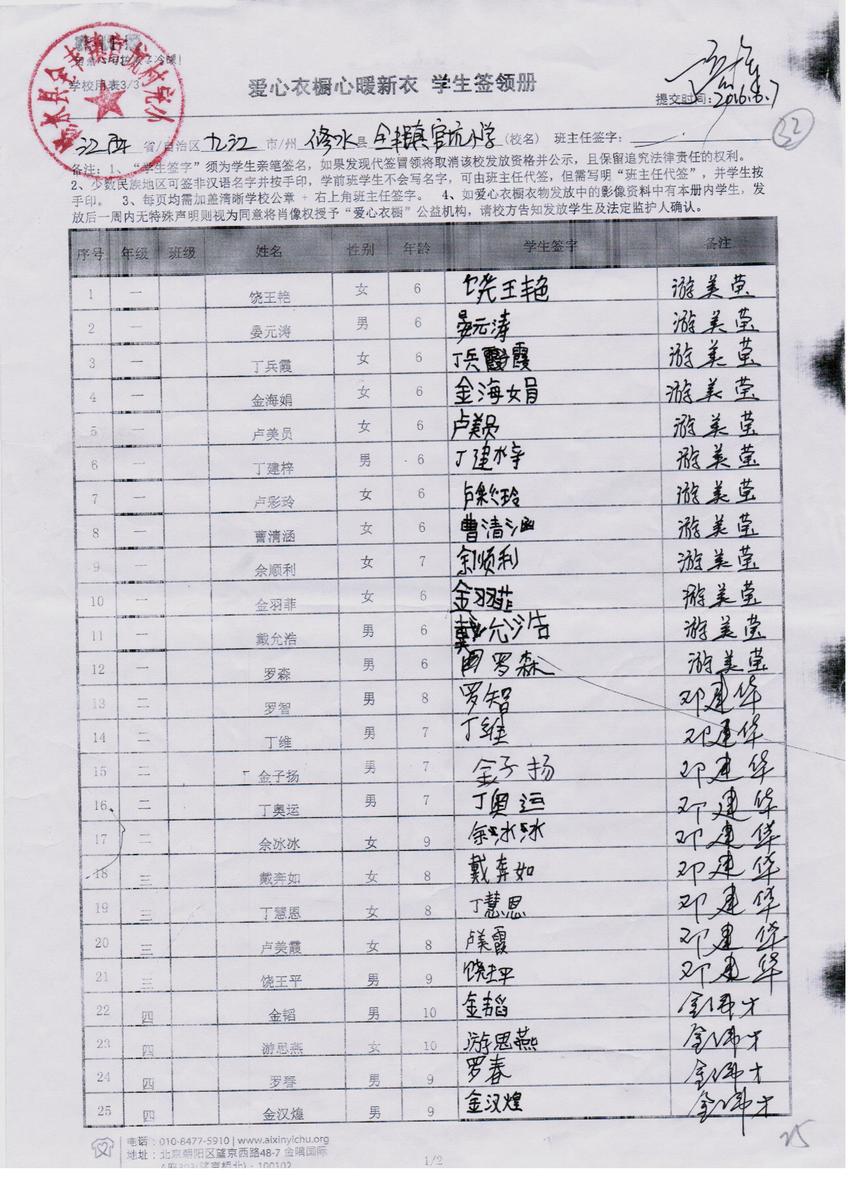 学校用表3/3
爱心衣橱心暖新衣 学生签领册
提交时间：2016.6.7
32
江西 省/自治区 九江 市/州 修水 县 全丰镇官坑小学 (校名) 班主任签字：
备注：1、“学生签字”须为学生亲笔签名，如果发现代签冒领将取消该校发放资格并公示，且保留追究法律责任的权利。
2、少数民族地区可签非汉语名字并按手印，学前班学生不会写名字，可由班主任代签，但需写明“班主任代签”，并学生按
手印。 3、每页均需加盖清晰学校公章 + 右上角班主任签字。 4、如爱心衣橱衣物发放中的影像资料中有本册内学生，发
放后一周内无特殊声明则视为同意将肖像权授予“爱心衣橱”公益机构，请校方告知发放学生及法定监护人确认。
序号 年级 班级 姓名 性别 年龄 学生签字 备注
1 一 饶王艳 女 6 饶王艳 游美莹
2 一 晏元涛 男 6 晏元涛 游美莹
3 一 丁兵霞 女 6 丁兵霞 游美莹
4 一 金海娟 女 6 金海娟 游美莹
5 一 卢美员 女 6 卢美员 游美莹
6 一 丁建梓 男 6 丁建梓 游美莹
7 一 卢彩玲 女 6 卢彩玲 游美莹
8 一 曹清涵 女 6 曹清涵 游美莹
9 一 余顺利 女 7 余顺利 游美莹
10 一 金羽菲 女 6 金羽菲 游美莹
11 一 戴允浩 男 6 戴允浩 游美莹
12 一 罗森 男 6 罗森 游美莹
13 二 罗智 男 8 罗智 邓建华
14 二 丁维 男 7 丁维 邓建华
15 二 金子扬 男 7 金子扬 邓建华
16 二 丁奥运 男 7 丁奥运 邓建华
17 二 余冰冰 女 9 余冰冰 邓建华
18 三 戴奔如 女 8 戴奔如 邓建华
19 三 丁慧恩 女 8 丁慧恩 邓建华
20 三 卢美霞 女 8 卢美霞 邓建华
21 三 饶王平 男 9 饶王平 邓建华
22 四 金韬 男 10 金韬 金伟才
23 四 游思燕 女 10 游思燕 金伟才
24 四 罗春 男 9 罗春 金伟才
25 四 金汉煌 男 9 金汉煌 金伟才
25
电话：010-8477-5910 | www.aixinyichu.org
地址：北京朝阳区望京西路48-7 金隅国际
1/2